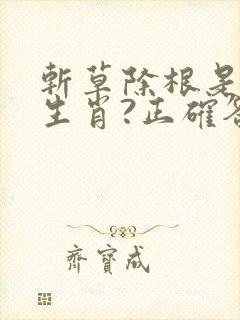 斬草除根是
生肖?正確答
齊寶成